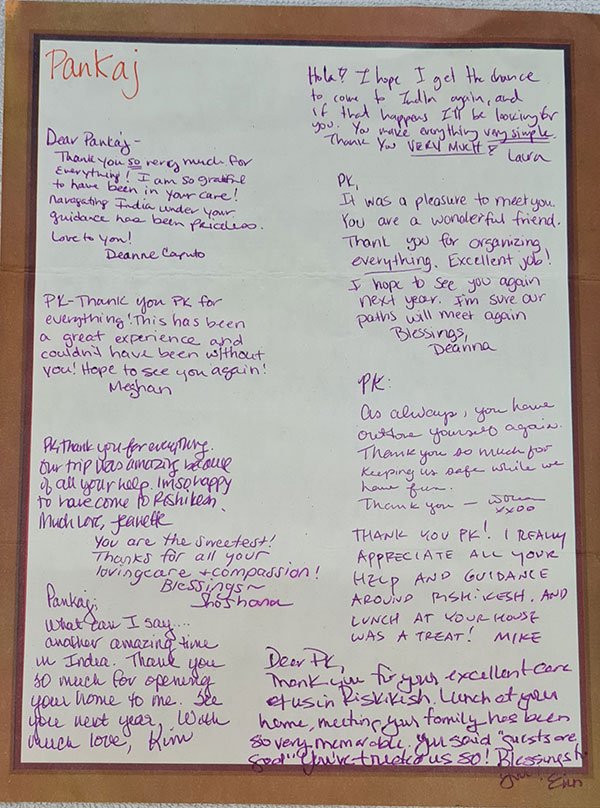 Pankaj
Dear Pankaj-
Thank you so very much for
everything! I am so grateful
to have been in your care!
navigating India under your
guidance has been priceless.
Love to you!
Deanne Caputo
PK-Thank you PK for
everything! This has been
a great experience and
couldn't have been without
you! Hope to see you again!
Meghan
PK, Thank you for everything.
Our trip was amazing because
of all your help. Im so happy
to have come to Rishikesh.
Much love, Jeanette
You are the sweetest!
Thanks for all your
loving care + compassion!
Blessings~
Shoshana
Pankaj,
What can I say...
another amazing time
in India. Thank you
so much for opening
your home to me. See
you next year. With
much love, Kim
Hola!! I hope I get the chance
to come to India again, and
if that happens I'll be looking for
you. You make everything very simple.
Thank You VERY MUCH!
Laura
PK,
It was a pleasure to meet you.
You are a wonderful friend.
Thank you for organizing
everything. Excellent job!
I hope to see you again
next year. I'm sure our
paths will meet again
Blessings,
Deanna
PK:
As always, you have
outdone yourself again.
Thank you so much for
keeping us safe while we
have fun.
Thank you -
xxoo
THANK YOU PK! I REALLY
APPRECIATE ALL YOUR
HELP AND GUIDANCE
AROUND RISHIKESH. AND
LUNCH AT YOUR HOUSE
WAS A TREAT! MIKE
Dear PK,
Thank you for your excellent care
of us in Riskikish. Lunch at your
home, meeting your family has been
so very memorable. You said "guests are
God" You've treated us so! Blessings
Erin